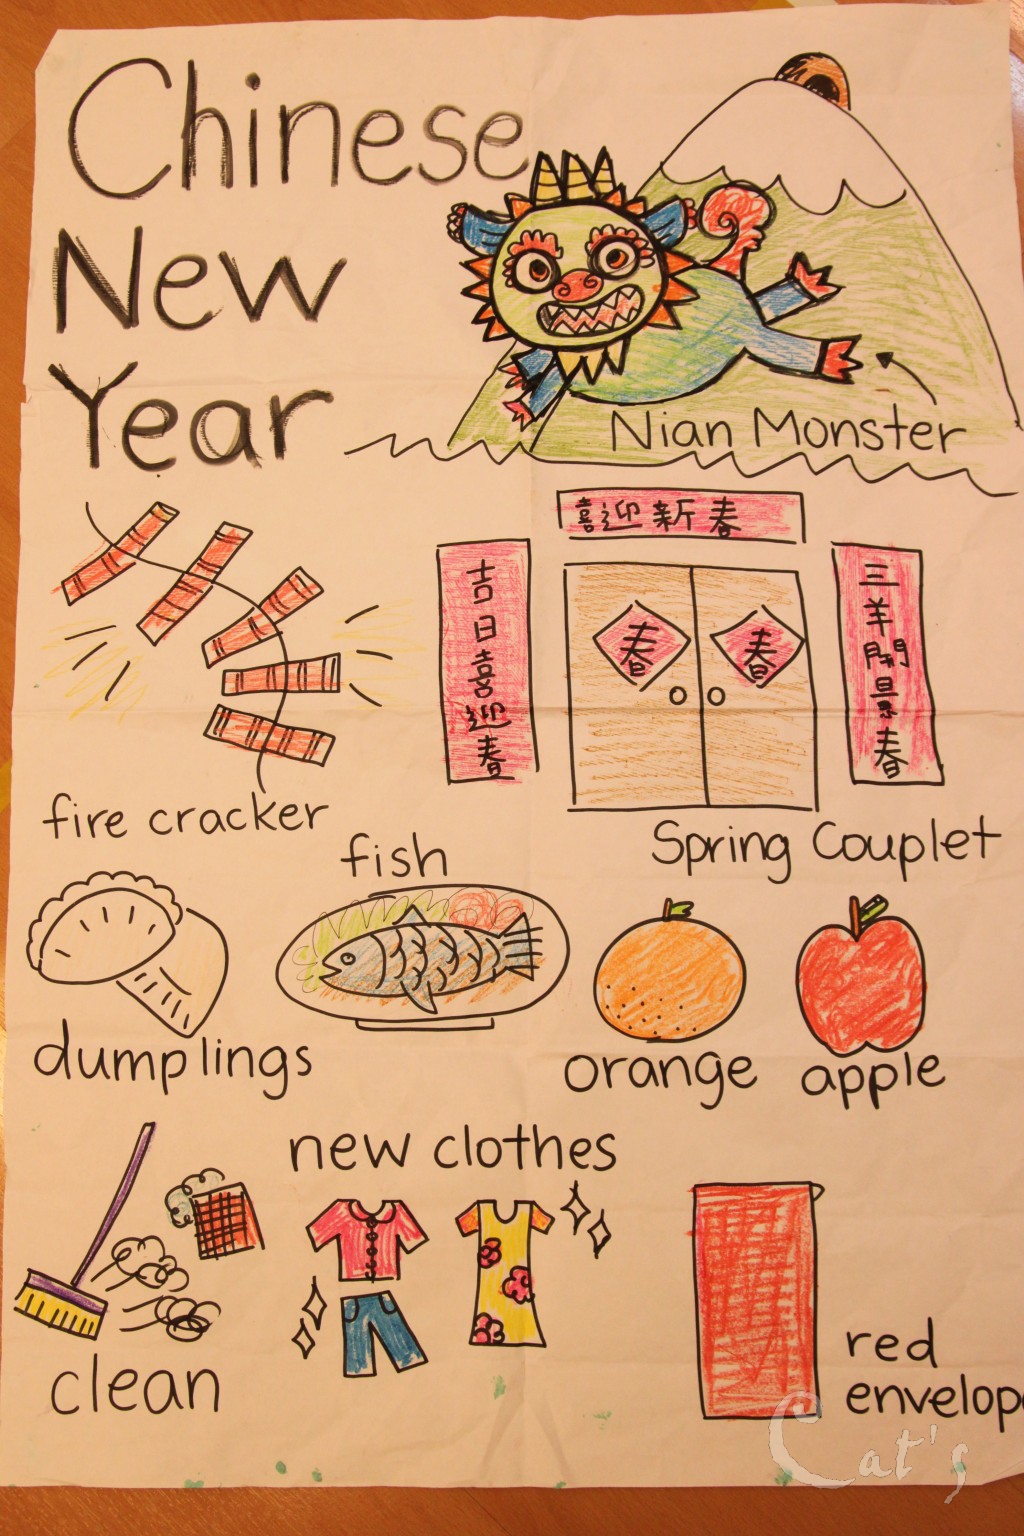 Chinese
New
Year
Nian Monster
喜迎新春
吉日喜迎春
春
春
三羊開景春
fire cracker
Spring Couplet
fish
dumplings
orange
apple
new clothes
clean
red
envelope
Cat's